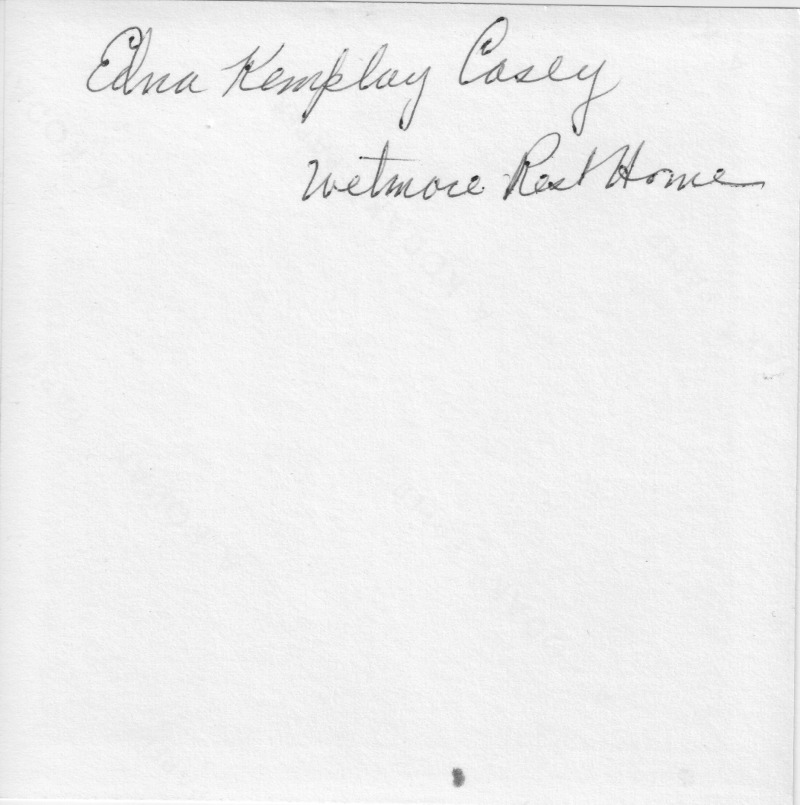 Edna Kemplay Casey
Wetmore Rest Home